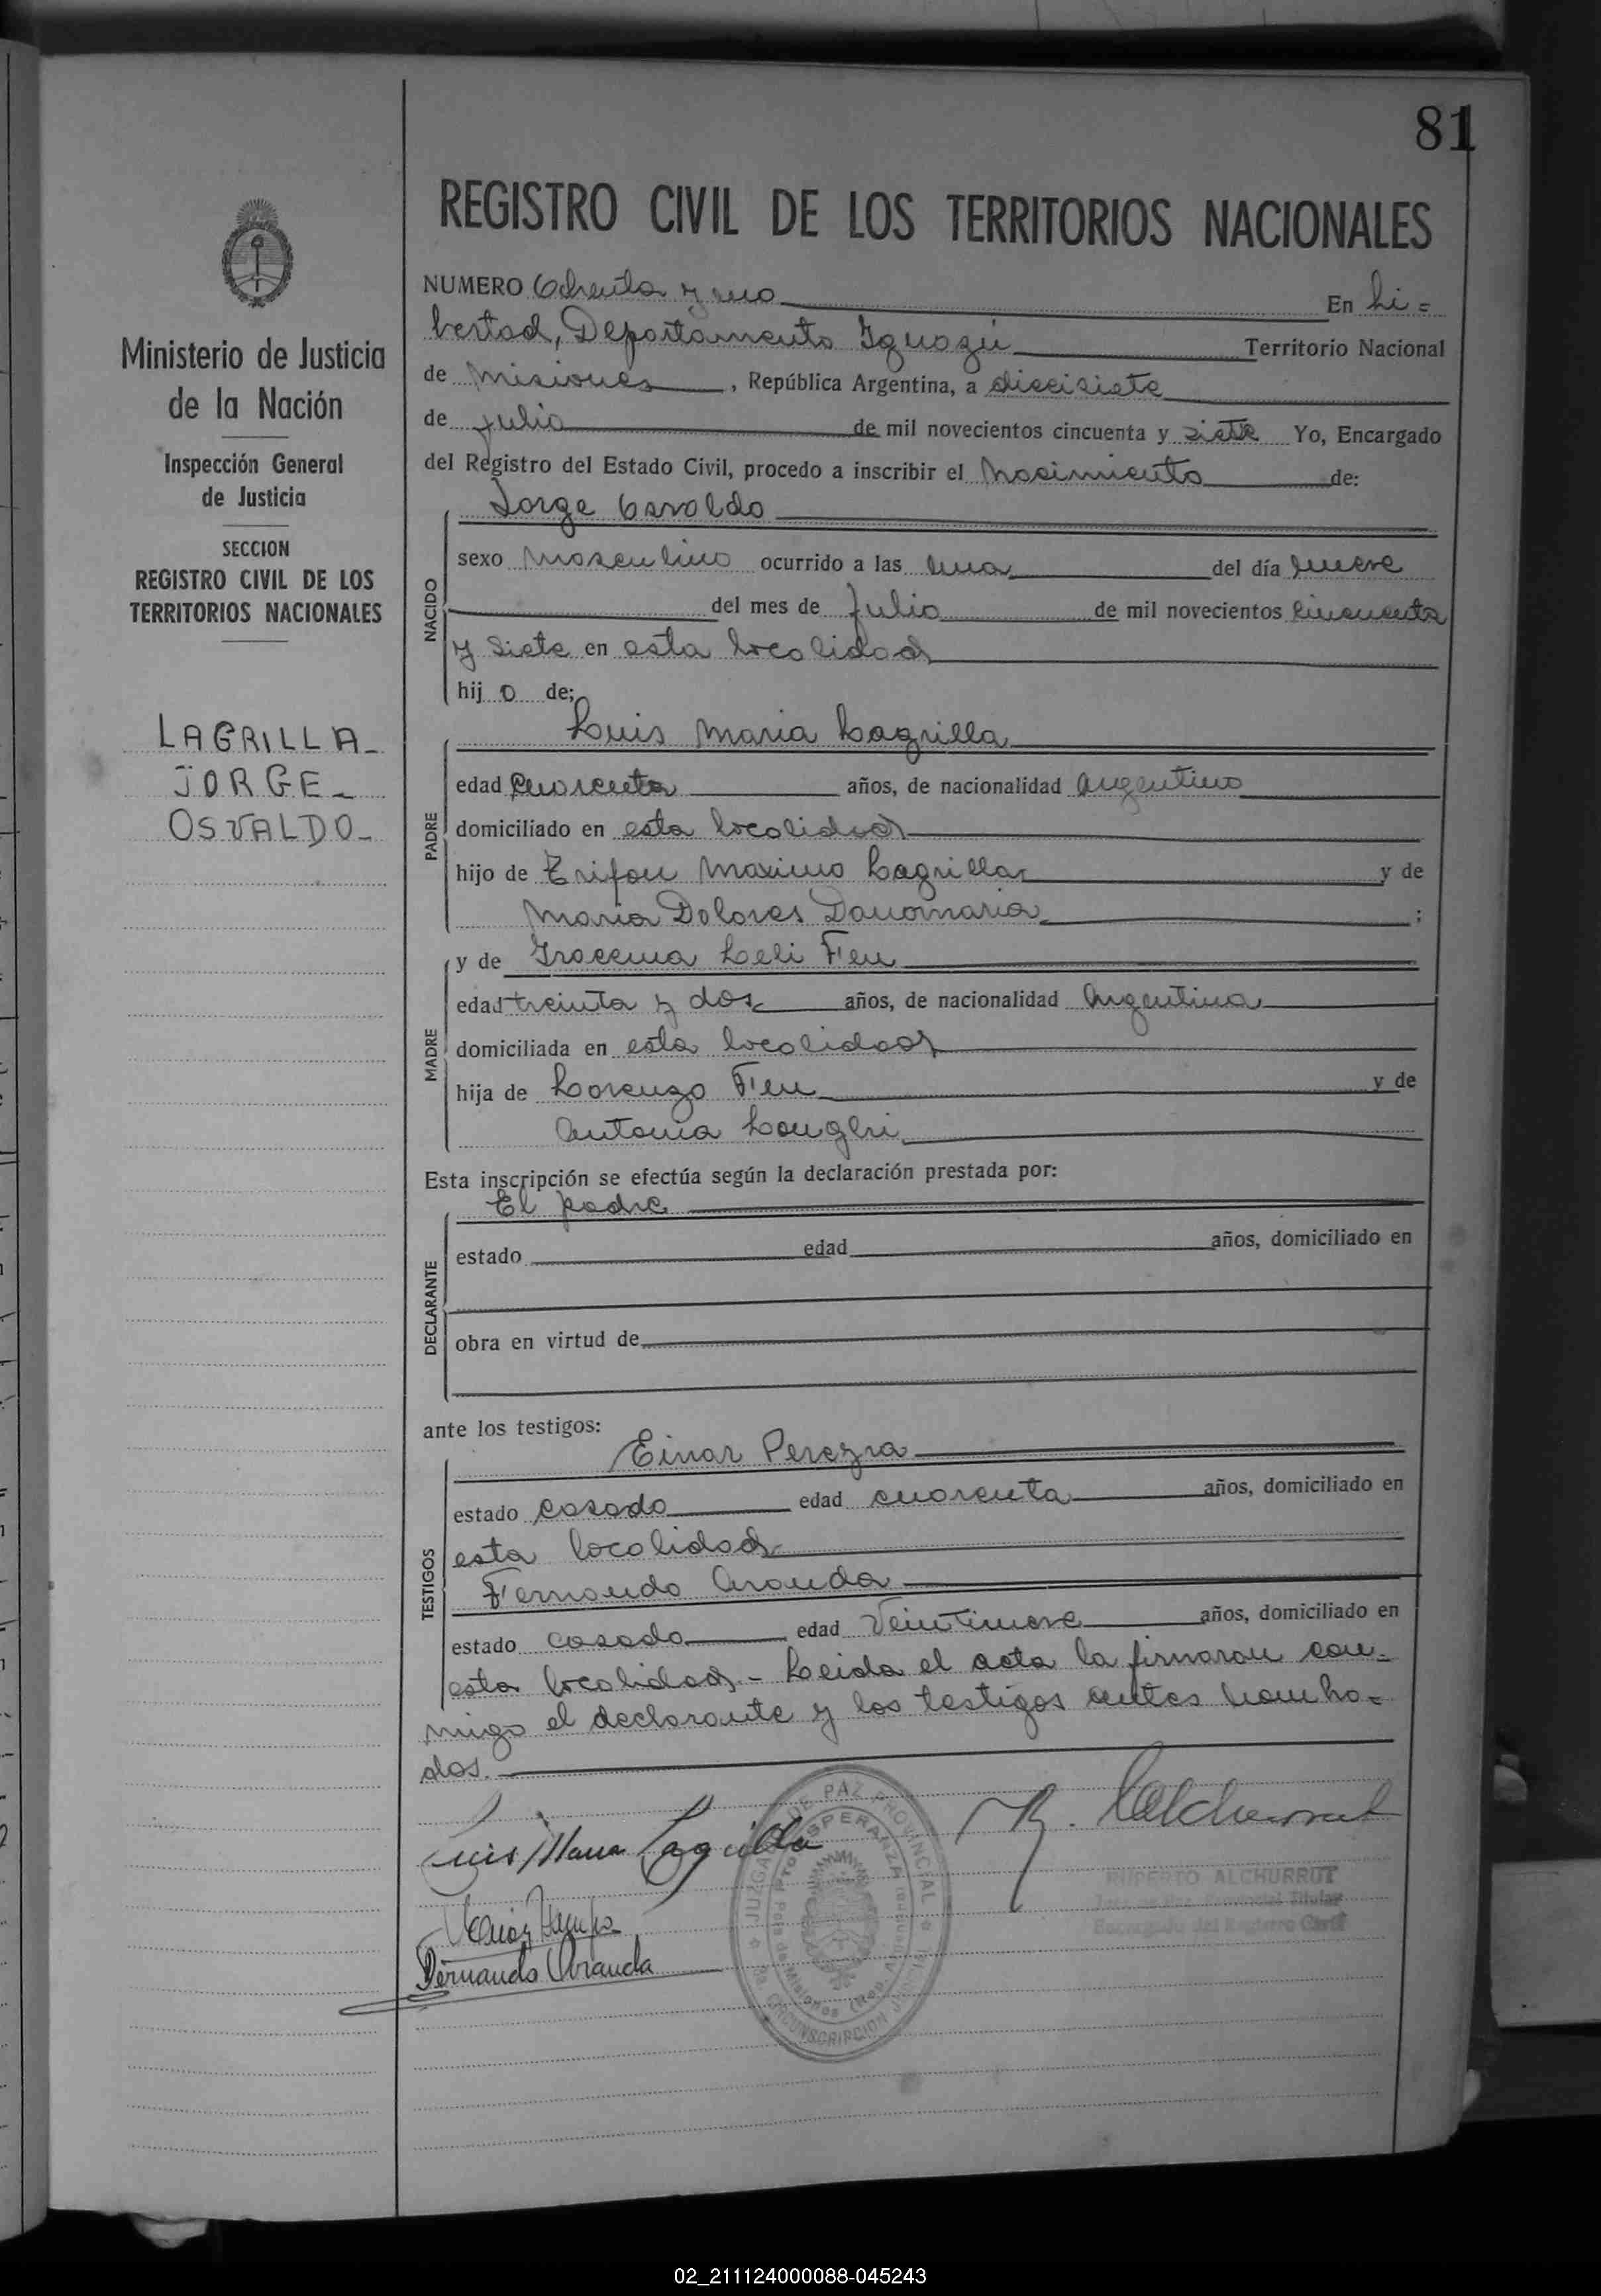 81
REGISTRO CIVIL DE LOS TERRITORIOS NACIONALES
Ministerio de Justicia
de la Nación
Inspección General
de Justicia
SECCION
REGISTRO CIVIL DE LOS
TERRITORIOS NACIONALES
LAGRILLA
JORGE
OSVALDO
NUMERO Ochenta y uno En Li=
bertad, Departamento Iguazú Territorio Nacional
de Misiones, República Argentina, a diecisiete
de julio de mil novecientos cincuenta y siete Yo, Encargado
del Registro del Estado Civil, procedo a inscribir el Nacimiento de:
Jorge Osvaldo
NACIDO
sexo Masculino ocurrido a las una del día nueve
del mes de Julio de mil novecientos cincuenta
y siete en esta localidad
hijo de;
Luis Maria Lagrilla
PADRE
edad cuarenta años, de nacionalidad argentino
domiciliado en esta localidad
hijo de Trifon Maximo Lagrilla y de
Maria Dolores ;
MADRE
y de Feu
edad treinta y dos años, de nacionalidad Argentina
domiciliada en esta localidad
hija de Lorenzo Feu y de
Antonia
Esta inscripción se efectúa según la declaración prestada por:
El padre
DECLARANTE
estado edad años, domiciliado en
obra en virtud de
ante los testigos:
Einar
TESTIGOS
estado casado edad cuarenta años, domiciliado en
esta localidad
Fernando Aranda
estado casado edad Veintinueve años, domiciliado en
esta localidad.- Leida el acta la firmaron con-
migo el declarante y los testigos antes nombra=
dos.
Luis Maria Lagrilla
Fernando Aranda
JUZGADO DE PAZ PROVINCIAL
RUPERTO ALCHURRUT
Juez de Paz Provincial Titular
Encargado del Registro Civil
02_211124000088-045243